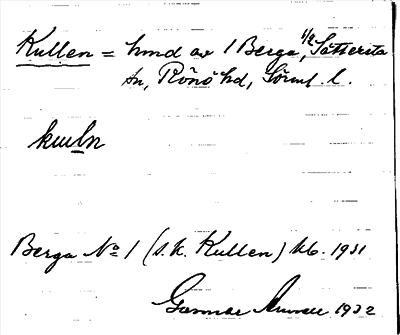 Kullen = hmd av 1 Berga, 1/2 Sättersta
sn, Rönö hd, Sörml. l.
kuln
Berga No 1 (s.k. Kullen) kb. 1931
Gunnar 1932